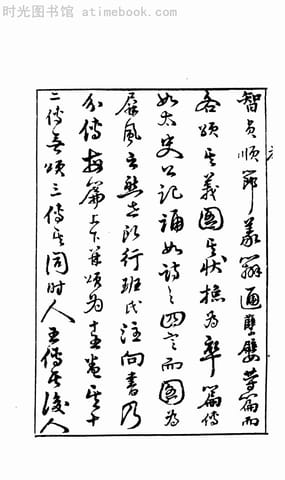 时光图书馆 atimebook.com
智貞順節義辯通孽嬖等篇而
各頌其義圖其狀總為卒篇傳
如太史公記頌如詩之四言而圖為
屏風云然世所行班氏注向書乃
分傳每篇上下并頌為十五卷其十
二傳無頌三傳其同時人五傳其後人